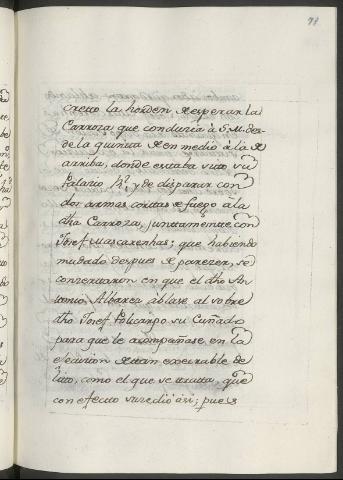 78
creto la horden, de esperar la
Carroza, que conduria à S. M. des-
de la quinta de en medio à la de
arriba, donde estaba sito su
Palacio Rl. y de disparar con
dos armas cortas de fuego à la
dha Carroza, juntamente con
Josef Mascarenhas; que habiendo
mudado despues de parecer, se
consertaron en que el dho An-
tonio Albarez áblase al sobre
dho Josef Policarpo su Cuñado
para que le acompañase en la
efecucion de tan execrable de-
lito, como el que se trata, que
con efecto susedió ási; pues